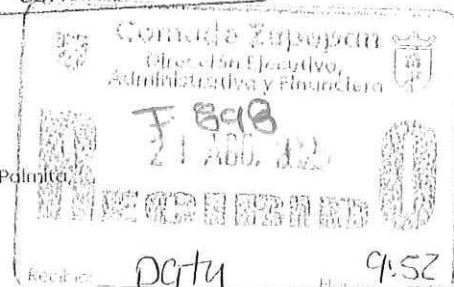 Comude Zapopan
Dirección Ejecutivo,
Administrativa y Financiera
F 898
21 AGO.
Palmita,
RECIBIDO
Recibe: Paty
9:52